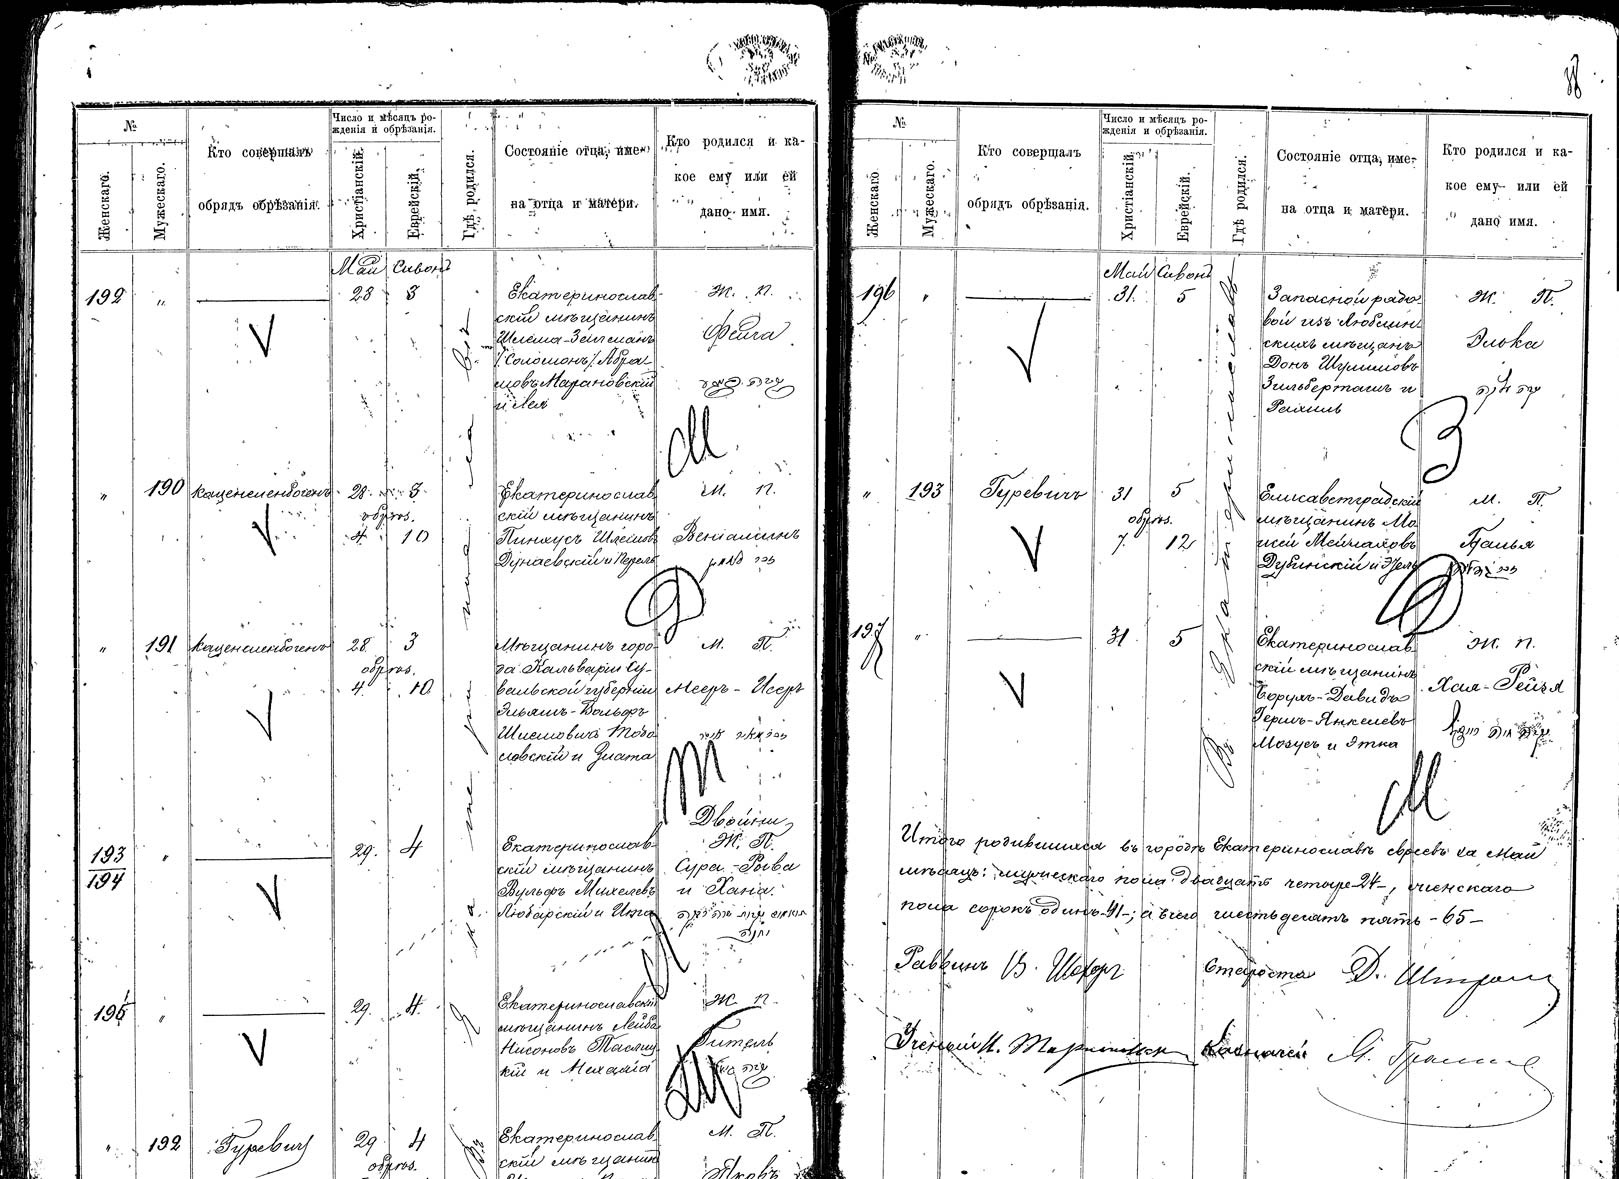 №
Женскаго.
Мужескаго.
Кто совершалъ
обрядъ обрѣзанія.
Число и мѣсяцъ ро-
жденія и обрѣзанія.
Христіанскій.
Еврейскій.
Гдѣ родился.
Состояніе отца, име-
на отца и матери.
Кто родился и ка-
кое ему или ей
дано имя.
Май Сивонъ
192 " 28 3
Екатеринослав-
скій мѣщанинъ
Шлема-Зельманъ
/Соломонъ/ Абра-
мовъ Марановскій
и Лея
Ж. П.
Фейга
" 190 Каценеленбогенъ 28 3
обрѣз.
4 10
Екатеринослав
скій мѣщанинъ
Пинхусъ Шлемовъ
Дунаевскій и Перель
М. П.
Веніаминъ
" 191 Каценеленбогенъ 28 3
обрѣз.
4 10
Мѣщанинъ горо-
да Кальваріи Су-
вальской губерніи
Эльяшъ-Вольфъ
Шлемовичъ
и Злата
М. П.
Мееръ-Исеръ
193
194
" 29. 4
Екатеринослав-
скій мѣщанинъ
Вульфъ Михелевъ
Любарскій и
Двойни
Ж. П.
Сура-Рохва
и Хана.
195 " 29. 4.
Екатеринославскій
мѣщанинъ Лейба
Нисоновъ Таслиц
кій и Михаля
Ж. П.
Гитель
" 192 Гуревичъ 29 4
обрѣз.
Екатеринослав
скій мѣщанинъ
М. П.
Яковъ
№
Женскаго
Мужескаго.
Кто совершалъ
обрядъ обрѣзанія.
Число и мѣсяцъ ро-
жденія и обрѣзанія.
Христіанскій.
Еврейскій.
Гдѣ родился.
Состояніе отца, име-
на отца и матери.
Кто родился и ка-
кое ему или ей
дано имя.
Май Сивонъ
196 " 31. 5
Въ Екатеринославѣ
Запасной рядо-
вой изъ Люблин
скихъ мѣщанъ
Донъ Шулимовъ
Зильберташъ и
Рахиль
Ж. П.
Элька
" 193 Гуревичъ 31 5
обрѣз.
7. 12
Елисаветградскій
мѣщанинъ Мо
исей
Дубинскій и
М. П.
197 " 31. 5
Екатеринослав
скій мѣщанинъ
Борухъ-Давидъ
Гершъ-Янкелевъ
Мозусъ и Этка
Ж. П.
Хая-Рейзя
Итого родившихся въ городѣ Екатеринославѣ евреевъ за Май
мѣсяцъ: мужескаго пола двадцать четыре-24-, женскаго
пола сорокъ одинъ-41-; а всего шестьдесятъ пять-65-
Раввинъ В. Шахоръ Староста Д.
Ученый И. Казначей